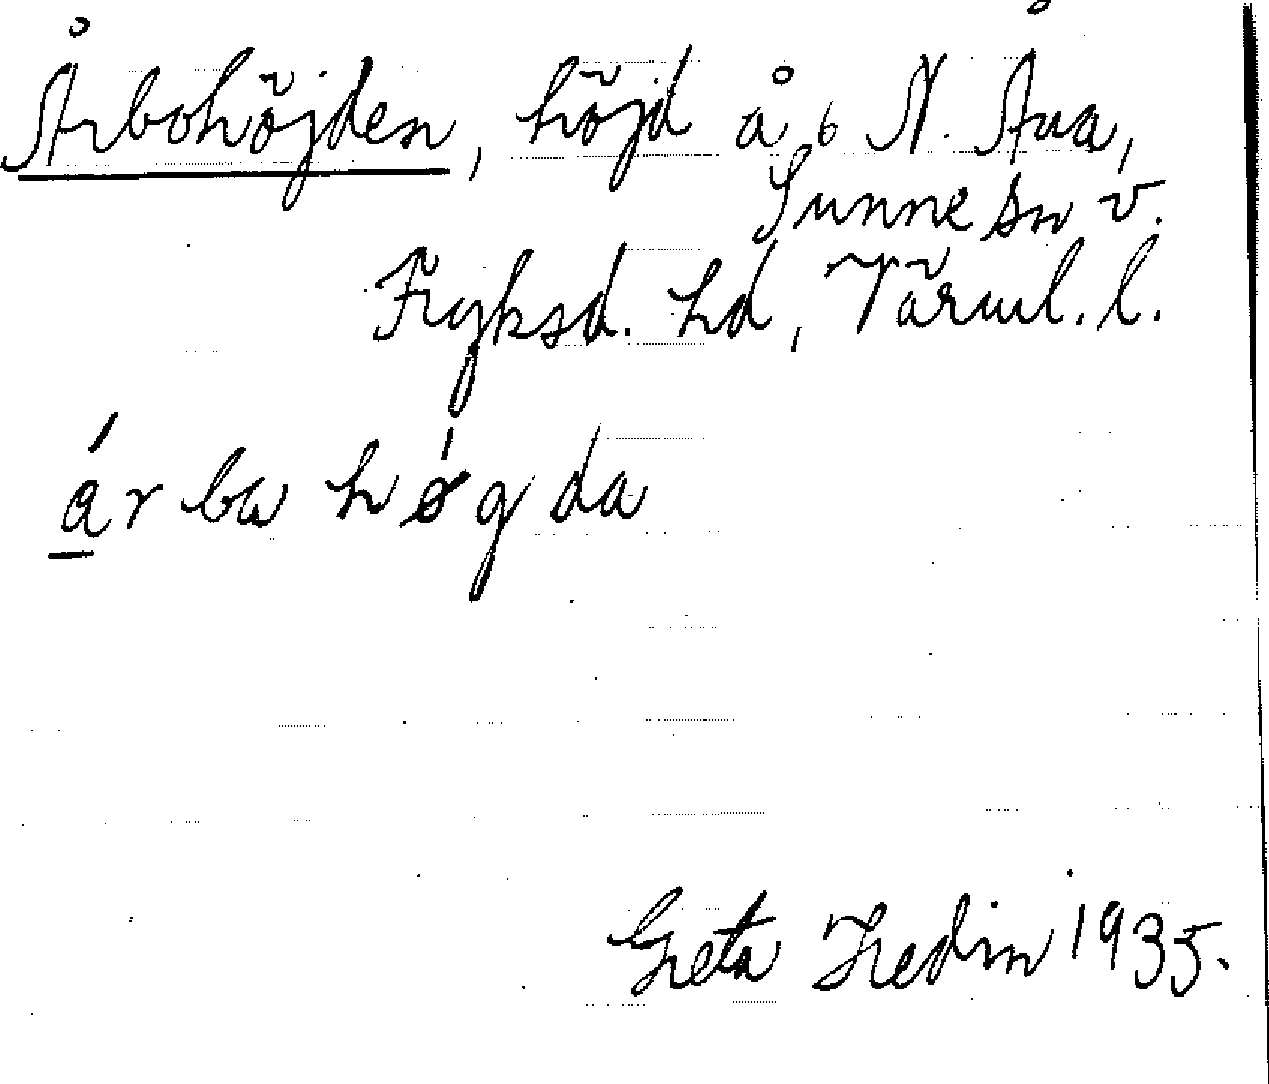 Årbohöjden, höjd å 6 N. Åua,
Sunne sn v.
Fryksd. hd, Värml. l.
árba høgda
Greta Hedin 1935.